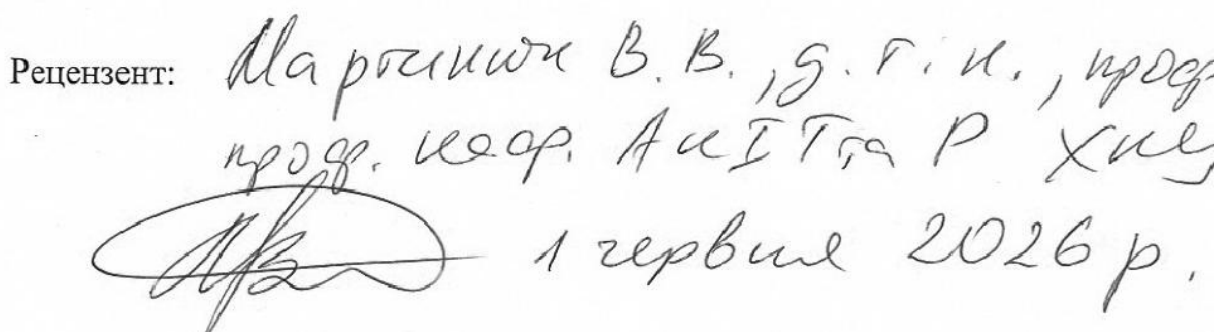 Рецензент: Мартинюк В.В., д.т.н., проф
проф. каф. АКІТта Р ХНУ
1 червня 2026 р.